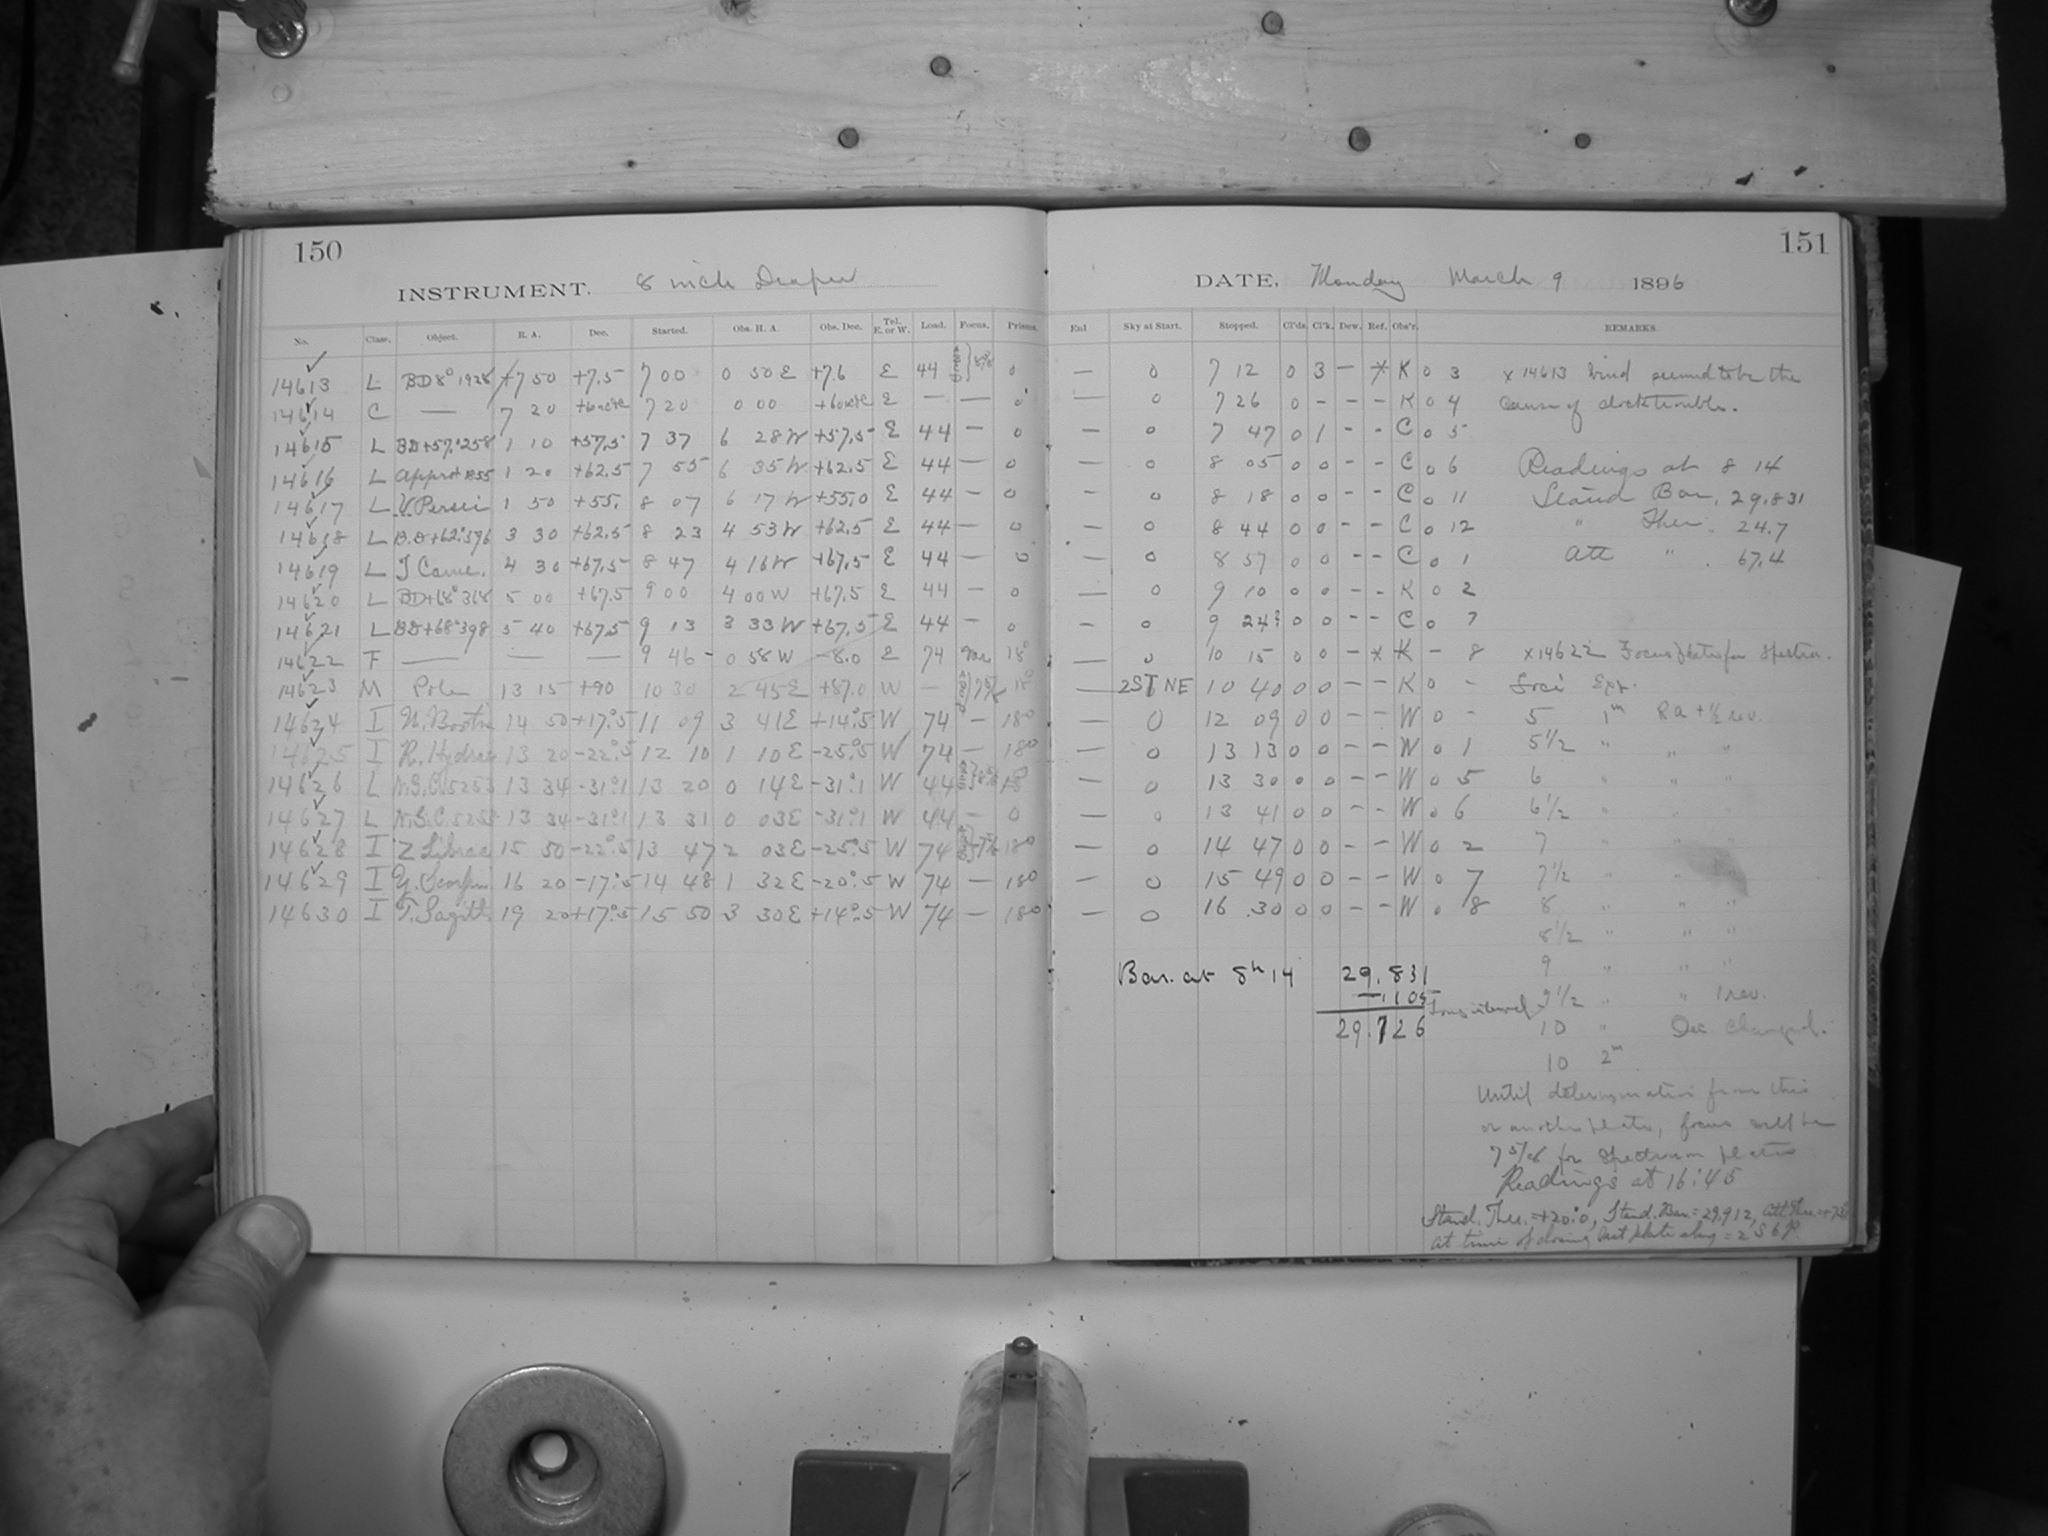 150
INSTRUMENT. 8 inch Draper
No. Class. Object. R. A. Dec. Started. Obs. H. A. Obs. Dec. Tel. E. or W. Load. Focus. Prisms.
14613 L BD 8° 1928 7 50 +7.5 7 00 0 50 E +7.6 E 44 0
14614 C — 7 20 7 20 0 00 E — — 0
14615 L BD+57.°258 1 10 +57.5 7 37 6 28 W +57.5 E 44 — 0
14616 L 1 20 +62.5 7 55 6 35 W +62.5 E 44 — 0
14617 L V. Persei 1 50 +55. 8 07 6 17 W +55.0 E 44 — 0
14618 L B.D+62°.596 3 30 +62.5 8 23 4 53 W +62.5 E 44 — 0
14619 L T Came. 4 30 +67.5 8 47 4 16 W +67.5 E 44 — 0
14620 L BD+68°368 5 00 +67.5 9 00 4 00 W +67.5 E 44 — 0
14621 L BD+68°398 5 40 +67.5 9 13 3 33 W +67.5 E 44 — 0
14622 F — — — 9 46 0 58 W -8.0 E 74 Var 18°
14623 M Pole 13 15 +90 10 30 2 45 E +87.0 W — 18°
14624 I U. Bootis 14 50 +17°.5 11 09 3 41 E +14°.5 W 74 — 18°
14625 I R. Hydrae 13 20 -22°.5 12 10 1 10 E -25°.5 W 74 — 18°
14626 L N.G.C. 5253 13 34 -31°.1 13 20 0 14 E -31°.1 W 44
14627 L N.G.C. 5253 13 34 -31°.1 13 31 0 03 E -31°.1 W 44 — 0
14628 I Z Librae 15 50 -22°.5 13 47 2 03 E -25°.5 W 74 18°
14629 I Scorpii 16 20 -17°.5 14 48 1 32 E -20°.5 W 74 — 18°
14630 I T. Sagitt 19 20 +17°.5 15 50 3 30 E +14°.5 W 74 — 18°
151
DATE, Monday March 9 1896
Enl Sky at Start. Stopped. Cl'ds. Cl'k. Dew. Ref. Obs'r. REMARKS.
— 0 7 12 0 3 — x K 0 3 x 14613 Wind seemed to be the
— 0 7 26 0 - - - K 0 4 cause of clock trouble.
— 0 7 47 0 1 - - C 0 5
— 0 8 05 0 0 - - C 0 6 Readings at 8 14
— 0 8 18 0 0 - - C 0 11 Stand Bar. 29.831
- 0 8 44 0 0 - - C 0 12 " Ther. 24.7
— 0 8 57 0 0 - - C 0 1 Att " 67.4
— 0 9 10 0 0 - - K 0 2
— 0 9 24? 0 0 - - C 0 7
— 0 10 15 0 0 - x K - 8 x14622 Focus plate for Spectra.
— 2ST NE 10 40 0 0 - - K 0 - Foci Exp.
— 0 12 09 0 0 - - W 0 - 5 1m R a + ½ rev.
— 0 13 13 0 0 - - W 0 1 5 1/2 " " "
— 0 13 30 0 0 - - W 0 5 6 " " "
— 0 13 41 0 0 - - W 0 6 6 1/2 " " "
— 0 14 47 0 0 - - W 0 2 7 " " "
— 0 15 49 0 0 - - W 0 7 7 1/2 " " "
— 0 16 30 0 0 - - W 0 8 8 " " "
8 1/2 " " "
Bar. at 8h 14 29.831 9 " " "
—.105 9 1/2 " " 1 rev.
29.726 10 " Dec. Changed.
10 2m
Until determination from this
or another plate, focus will be
7 5/8 for spectrum plates
Readings at 16:45
Stand. Ther. = +20°.0, Stand. Bar. = 29.912, Att. Ther.
At time of closing last plate sky = 2 S 6 P.